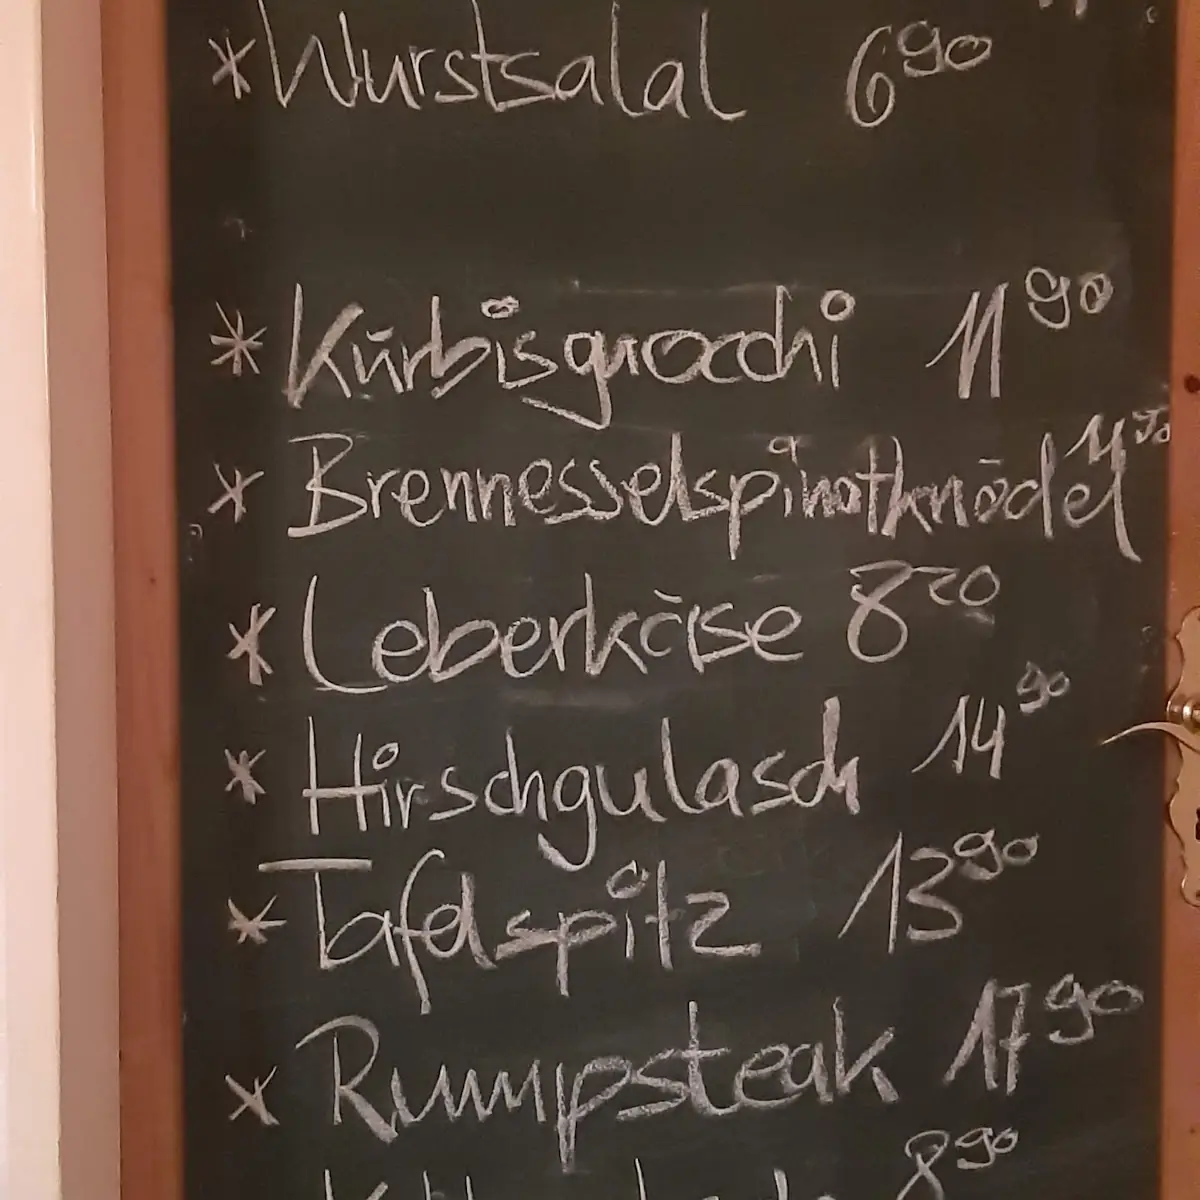 * Wurstsalat 6 90
* Kürbisgnocchi 11 90
* Brennesselspinatknödel
* Leberkäse 8 20
* Hirschgulasch 14 90
* Tafelspitz 13 90
* Rumpsteak 17 90
8 90